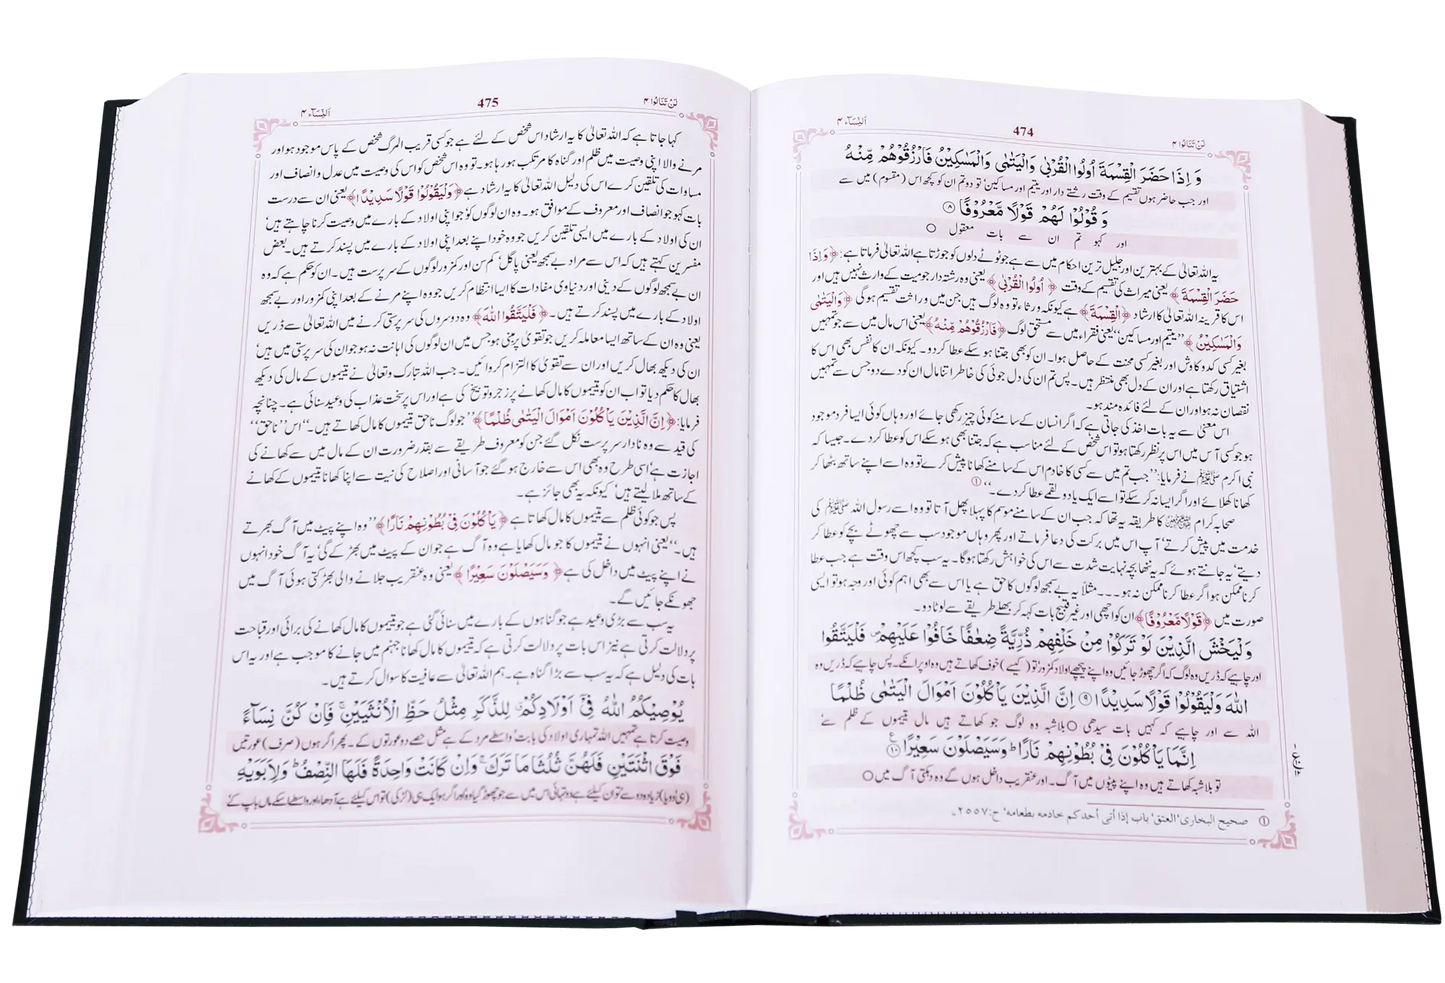 لَنْ تَنَالُوا ۴
474
اَلنِّسَآء ۴
وَ اِذَا حَضَرَ الْقِسْمَةَ اُولُوا الْقُرْبٰى وَالْيَتٰمٰى وَالْمَسٰكِيْنُ فَارْزُقُوْهُمْ مِّنْهُ
اور جب حاضر ہوں تقسیم کے وقت رشتے دار اور یتیم اور مساکین تو دو تم ان کو کچھ اس (مقسوم) میں سے
وَ قُوْلُوْا لَهُمْ قَوْلًا مَّعْرُوْفًا ۸
اور کہو تم ان سے بات معقول ○
یہ اللہ تعالیٰ کے بہترین اور جلیل ترین احکام میں سے ہے جو ٹوٹے دلوں کو جوڑتا ہے اللہ تعالیٰ فرماتا ہے: ﴿وَ اِذَا
حَضَرَ الْقِسْمَةَ﴾ یعنی میراث کی تقسیم کے وقت ﴿اُولُوا الْقُرْبٰى﴾ یعنی وہ رشتہ دار جو میت کے وارث نہیں ہیں اور
اس کا قرینہ اللہ تعالیٰ کا ارشاد ﴿الْقِسْمَةَ﴾ ہے کیونکہ ورثاء تو وہ لوگ ہیں جن میں وراثت تقسیم ہو گی ﴿وَالْيَتٰمٰى
وَالْمَسٰكِيْنُ﴾ ”یتیم اور مساکین“ یعنی فقراء میں سے مستحق لوگ ﴿فَارْزُقُوْهُمْ مِّنْهُ﴾ یعنی اس مال میں سے جو تمہیں
بغیر کسی کدوکاوش اور بغیر کسی محنت کے حاصل ہوا۔ ان کو بھی جتنا ہو سکے عطا کر دو۔ کیونکہ ان کا نفس بھی اس کا
اشتیاق رکھتا ہے اور ان کے دل بھی منتظر ہیں۔ پس تم ان کی دل جوئی کی خاطر اتنا مال ان کو دے دو جس سے تمہیں
نقصان نہ ہو اور ان کے لئے فائدہ مند ہو۔
اس معنی سے یہ بات اخذ کی جاتی ہے کہ اگر انسان کے سامنے کوئی چیز رکھی جائے اور وہاں کوئی ایسا فرد موجود
ہو جو کسی آس میں اس پر نظر رکھتا ہو تو اس شخص کے لئے مناسب ہے کہ جتنا بھی ہو سکے اس کو عطا کر دے۔ جیسا کہ
نبی اکرم ﷺ نے فرمایا: ”جب تم میں سے کسی کا خادم اس کے سامنے کھانا پیش کرے تو وہ اسے اپنے ساتھ بٹھا کر
کھانا کھلائے اور اگر ایسا نہ کر سکے تو اسے ایک یا دو لقمے عطا کر دے۔“ ①
صحابہ کرام کا طریقہ یہ تھا کہ جب ان کے سامنے موسم کا پہلا پھل آتا تو وہ اسے رسول اللہ ﷺ کی
خدمت میں پیش کرتے‘ آپ اس میں برکت کی دعا فرماتے اور پھر وہاں موجود سب سے چھوٹے بچے کو عطا کر
دیتے‘ یہ جانتے ہوئے کہ یہ ننھا بچہ نہایت شدت سے اس کی خواہش رکھتا ہو گا۔ یہ سب کچھ اس وقت ہے جب عطا
کرنا ممکن ہو اگر عطا کرنا ممکن نہ ہو۔۔۔مثلاً یہ بے سمجھ لوگوں کا حق ہے یا اس سے بھی اہم کوئی اور وجہ ہو تو ایسی
صورت میں ﴿قَوْلًا مَّعْرُوْفًا﴾ ان کو اچھی اور غیر قبیح بات کہہ کر بھلے طریقے سے لوٹا دو۔
وَلْيَخْشَ الَّذِيْنَ لَوْ تَرَكُوْا مِنْ خَلْفِهِمْ ذُرِّيَّةً ضِعٰفًا خَافُوْا عَلَيْهِمْ ۪ فَلْيَتَّقُوا
اور چاہیے کہ ڈریں وہ لوگ کہ اگر چھوڑ جائیں وہ اپنے پیچھے اولاد کمزور تو (کیسے) خوف کھاتے ہیں وہ اوپر انکے۔ پس چاہیے کہ ڈریں وہ
اللّٰهَ وَلْيَقُوْلُوْا قَوْلًا سَدِيْدًا ۹ اِنَّ الَّذِيْنَ يَاْكُلُوْنَ اَمْوَالَ الْيَتٰمٰى ظُلْمًا
اللہ سے اور چاہیے کہ کہیں بات سیدھی ○ بلاشبہ وہ لوگ جو کھاتے ہیں مال یتیموں کے ظلم سے‘
اِنَّمَا يَاْكُلُوْنَ فِيْ بُطُوْنِهِمْ نَارًا ؕ وَسَيَصْلَوْنَ سَعِيْرًا ۱۰
تو بلاشبہ کھاتے ہیں وہ اپنے پیٹوں میں آگ۔ اور عنقریب داخل ہوں گے وہ دہکتی آگ میں ○
① صحیح البخاری‘ العتق‘ باب إذا أتى أحدكم خادمه بطعامه‘ ح:۲۵۵۷۔
لَنْ تَنَالُوا ۴
475
اَلنِّسَآء ۴
کہا جاتا ہے کہ اللہ تعالیٰ کا یہ ارشاد اس شخص کے لئے ہے جو کسی قریب المرگ شخص کے پاس موجود ہو اور
مرنے والا اپنی وصیت میں ظلم اور گناہ کا مرتکب ہو رہا ہو۔ تو وہ اس شخص کو اس کی وصیت میں عدل و انصاف اور
مساوات کی تلقین کرے اس کی دلیل اللہ تعالیٰ کا یہ ارشاد ہے ﴿وَلْيَقُوْلُوْا قَوْلًا سَدِيْدًا﴾ یعنی ان سے درست
بات کہو جو انصاف اور معروف کے موافق ہو۔ وہ ان لوگوں کو جو اپنی اولاد کے بارے میں وصیت کرنا چاہتے ہیں‘
ان کی اولاد کے بارے میں ایسی تلقین کریں جو وہ خود اپنے بعد اپنی اولاد کے بارے میں پسند کرتے ہیں۔ بعض
مفسرین کہتے ہیں کہ اس سے مراد بے سمجھ یعنی پاگل‘ کم سن اور کمزور لوگوں کے سرپرست ہیں۔ ان کو حکم ہے کہ وہ
ان بے سمجھ لوگوں کے دینی اور دنیاوی مفادات کا ایسا انتظام کریں جو وہ اپنے مرنے کے بعد اپنی کمزور اور بے سمجھ
اولاد کے بارے میں پسند کرتے ہیں۔ ﴿فَلْيَتَّقُوا اللّٰهَ﴾ وہ دوسروں کی سرپرستی کرنے میں اللہ تعالیٰ سے ڈریں
یعنی وہ ان کے ساتھ ایسا معاملہ کریں جو تقویٰ پر مبنی ہو جس میں ان لوگوں کی اہانت نہ ہو جو ان کی سرپرستی میں ہیں‘
ان کی دیکھ بھال کریں اور ان سے تقویٰ کا التزام کروائیں۔ جب اللہ تبارک و تعالیٰ نے یتیموں کے مال کی دیکھ
بھال کا حکم دیا تو اب ان کو یتیموں کا مال کھانے پر زجر و توبیخ کی ہے اور اس پر سخت عذاب کی وعید سنائی ہے۔ چنانچہ
فرمایا: ﴿اِنَّ الَّذِيْنَ يَاْكُلُوْنَ اَمْوَالَ الْيَتٰمٰى ظُلْمًا﴾ ”جو لوگ ناحق یتیموں کا مال کھاتے ہیں۔“ اس ”ناحق“
کی قید سے وہ نادار سرپرست نکل گئے جن کو معروف طریقے سے بقدر ضرورت ان کے مال میں سے کھانے کی
اجازت ہے‘ اسی طرح وہ بھی اس سے خارج ہو گئے جو آسانی اور اصلاح کی نیت سے اپنا کھانا یتیموں کے کھانے
کے ساتھ ملا لیتے ہیں‘ کیونکہ یہ بھی جائز ہے۔
پس جو کوئی ظلم سے یتیموں کا مال کھاتا ہے ﴿يَاْكُلُوْنَ فِيْ بُطُوْنِهِمْ نَارًا﴾ ”وہ اپنے پیٹ میں آگ بھرتے
ہیں۔“ یعنی انہوں نے یتیموں کا جو مال کھایا ہے وہ آگ ہے جو ان کے پیٹ میں بھڑکے گی‘ یہ آگ خود انہوں
نے اپنے پیٹ میں داخل کی ہے ﴿وَسَيَصْلَوْنَ سَعِيْرًا﴾ یعنی وہ عنقریب جلانے والی بھڑکتی ہوئی آگ میں
جھونکے جائیں گے۔
یہ سب سے بڑی وعید ہے جو گناہوں کے بارے میں سنائی گئی ہے جو یتیموں کا مال کھانے کی برائی اور قباحت
پر دلالت کرتی ہے نیز اس بات پر دلالت کرتی ہے کہ یتیموں کا مال کھانا جہنم میں جانے کا موجب ہے اور یہ اس
بات کی دلیل ہے کہ یہ سب سے بڑا گناہ ہے۔ ہم اللہ تعالیٰ سے عافیت کا سوال کرتے ہیں۔
يُوْصِيْكُمُ اللّٰهُ فِيْٓ اَوْلَادِكُمْ ۗ لِلذَّكَرِ مِثْلُ حَظِّ الْاُنْثَيَيْنِ ۚ فَاِنْ كُنَّ نِسَآءً
وصیت کرتا ہے تمہیں اللہ تمہاری اولاد کی بابت‘ واسطے مرد کے ہے مثل حصے دو عورتوں کے۔ پھر اگر ہوں (صرف) عورتیں
فَوْقَ اثْنَتَيْنِ فَلَهُنَّ ثُلُثَا مَا تَرَكَ ۚ وَاِنْ كَانَتْ وَاحِدَةً فَلَهَا النِّصْفُ ؕ وَلِاَبَوَيْهِ
(ہی دو یا) زیادہ دو سے تو ان کیلئے ہے دو تہائی اس میں سے جو چھوڑ گیا وہ اور اگر ہو ایک ہی (لڑکی) تو اس کیلئے ہے آدھا‘ اور واسطے اسکے ماں باپ کے